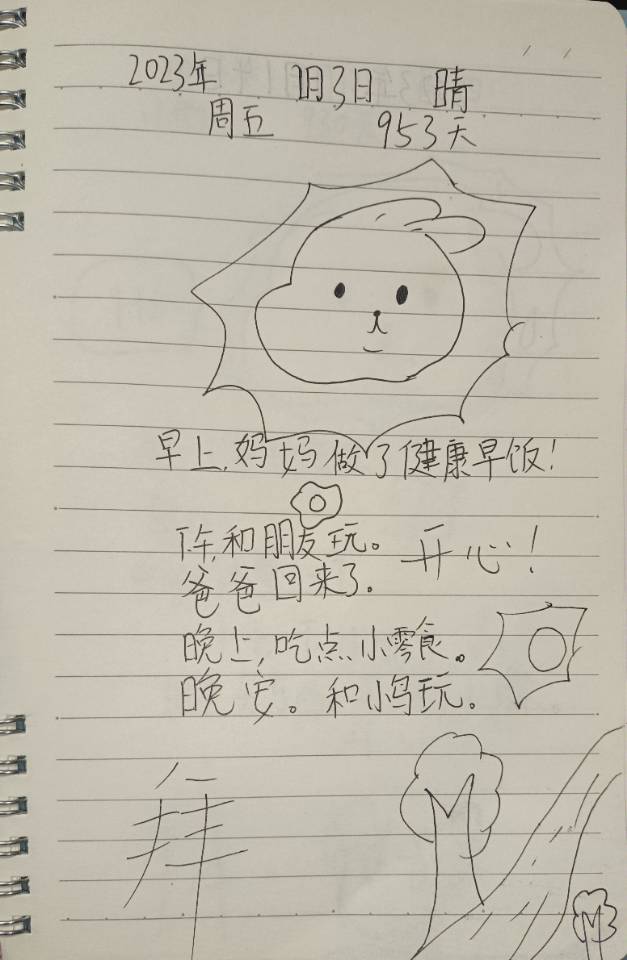 2023年 1月3日 晴
周五 953天
早上,妈妈做了健康早饭!
下午,和朋友玩。 开心!
爸爸回来了.
晚上,吃点小零食。
晚安。和小鸟玩。